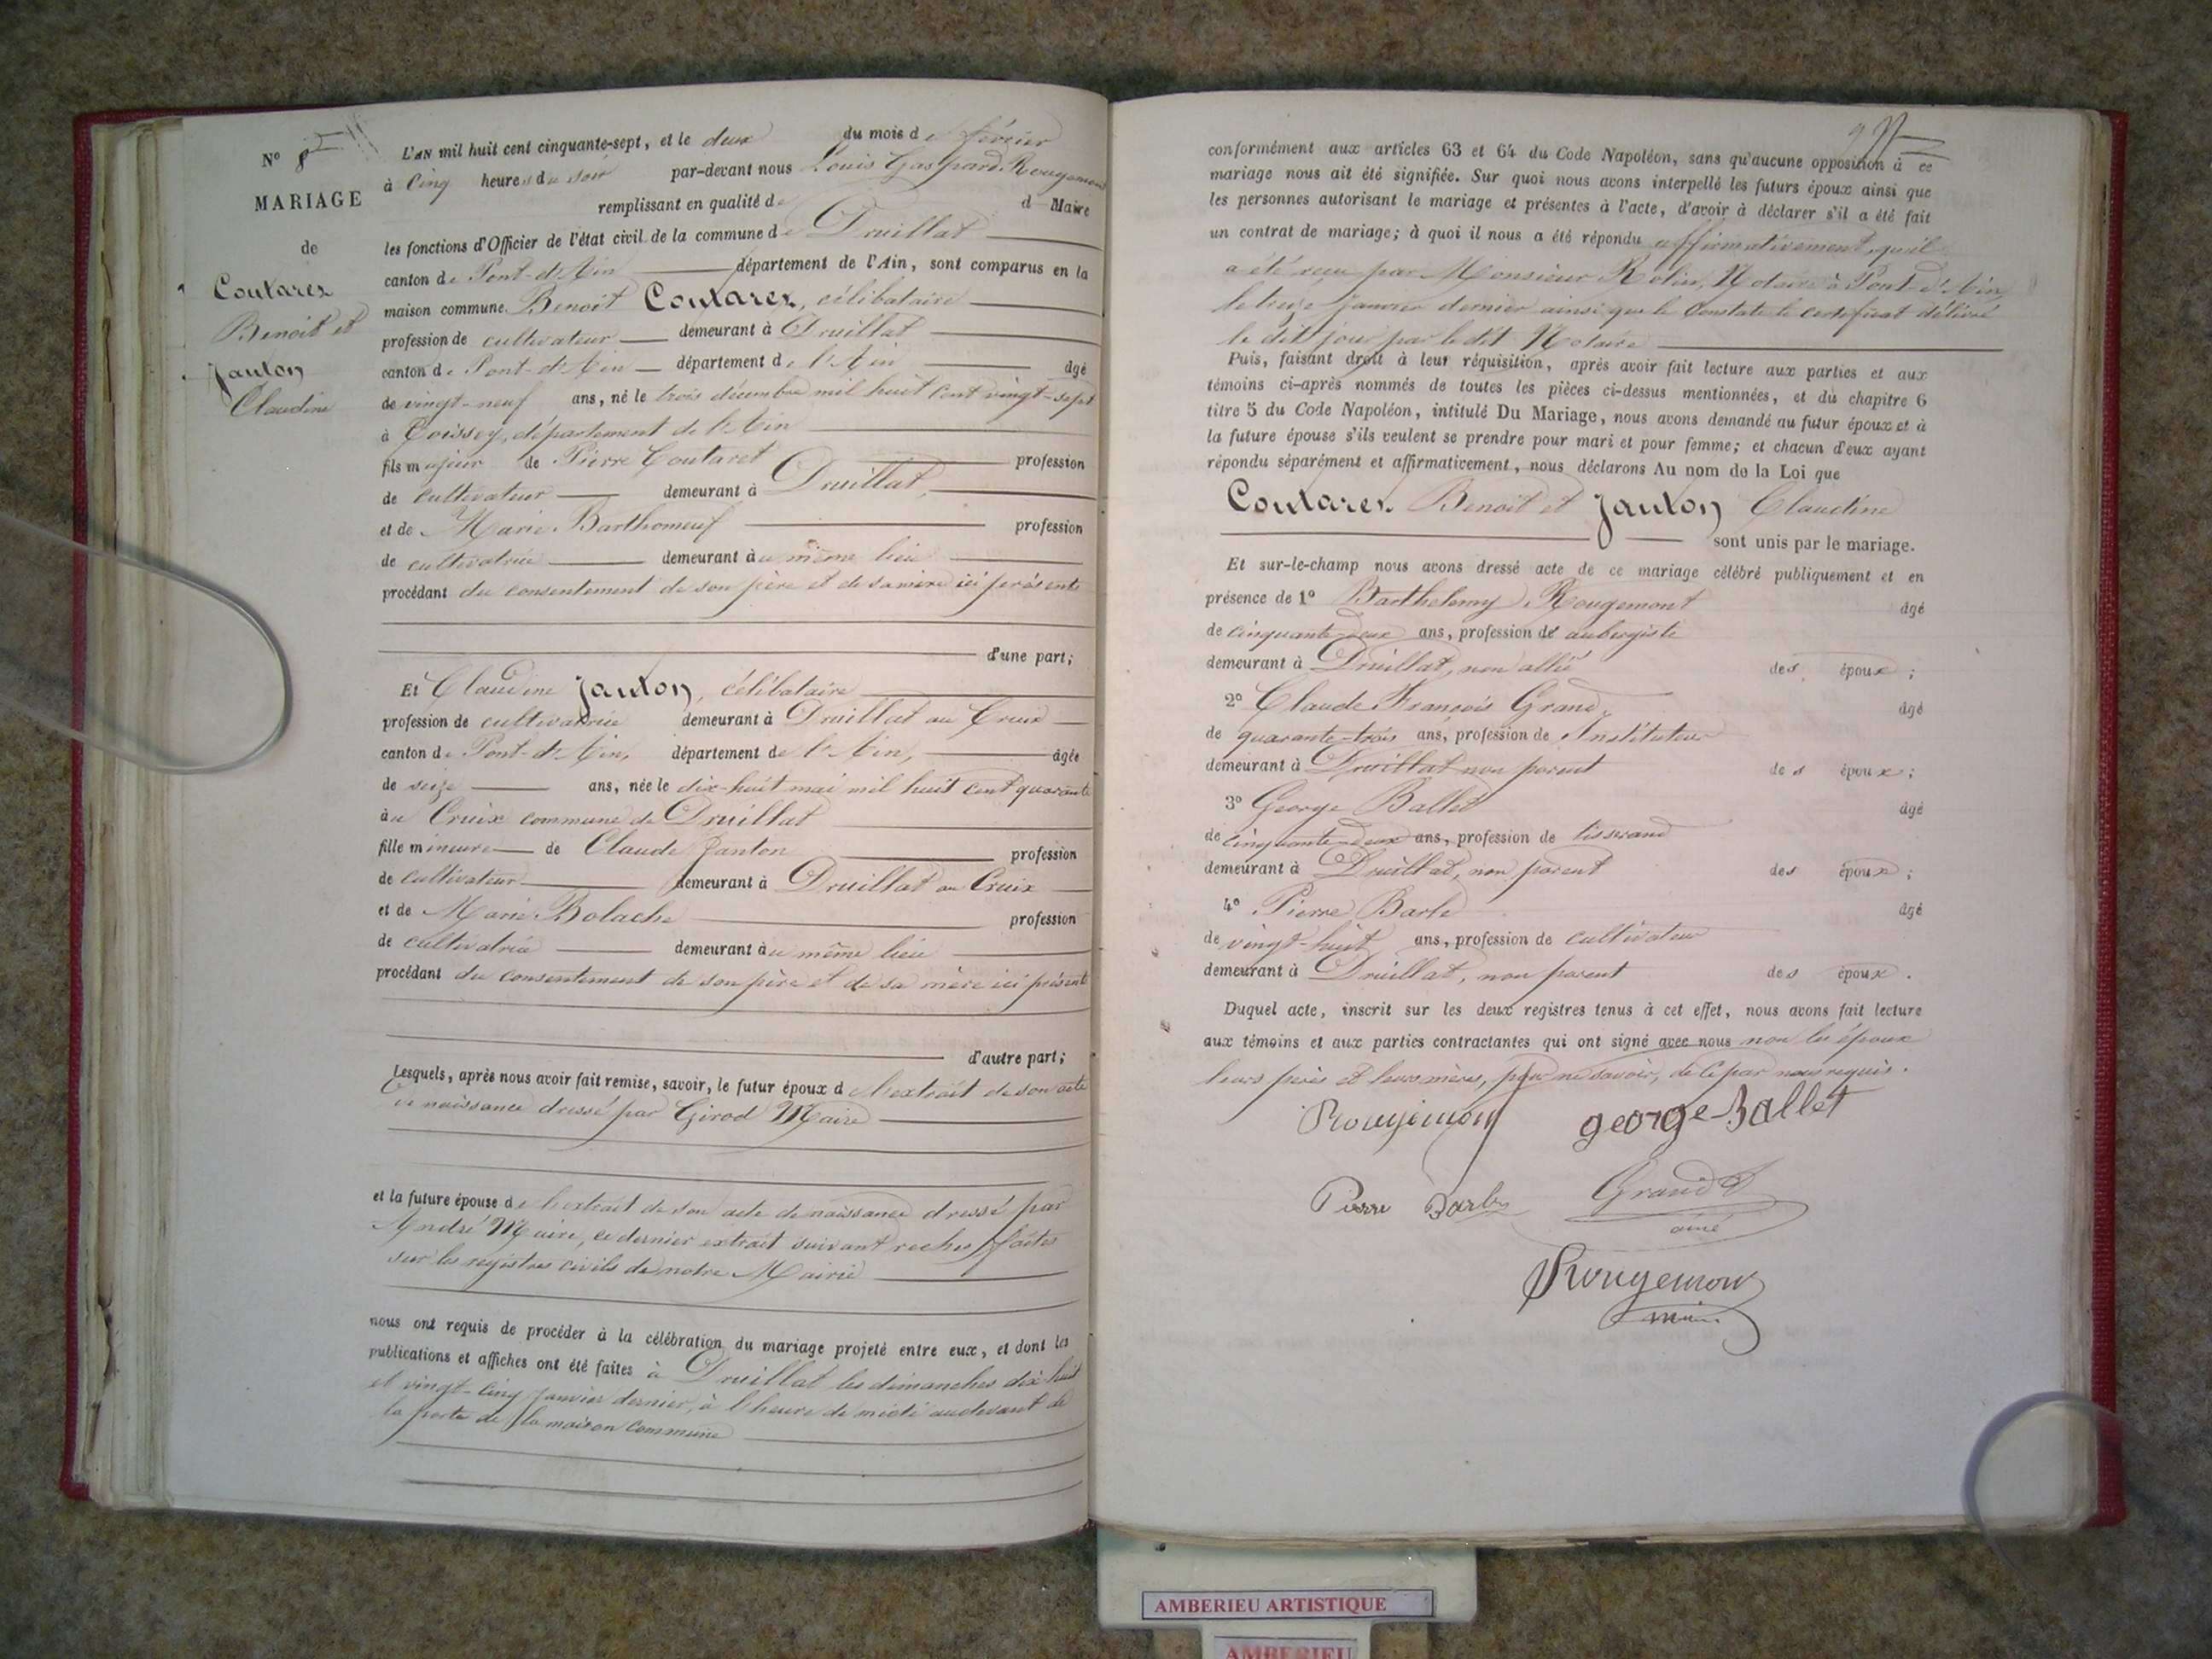 N° 8
MARIAGE
de
Coutarez
Benoit et
Janton
Claudine
L'AN mil huit cent cinquante-sept, et le deux du mois de février
à cinq heures du soir par-devant nous Louis Gaspard Rougemont
remplissant en qualité de d Maire
les fonctions d'Officier de l'état civil de la commune de Druillat
canton de Pont-d'Ain département de l'Ain, sont comparus en la
maison commune Benoit Coutarez, célibataire
profession de cultivateur demeurant à Druillat
canton de Pont-d'Ain département de l'Ain âgé
de vingt-neuf ans, né le trois décembre mil huit cent vingt-sept
à département de l'Ain
fils majeur de Pierre Coutaret profession
de cultivateur demeurant à Druillat,
et de Marie Barthomeuf profession
de cultivatrice demeurant au même lieu
procédant du consentement de son père et de sa mère ici présents
d'une part;
Et Claudine Janton, célibataire
profession de cultivatrice demeurant à Druillat au Cruix
canton de Pont-d'Ain, département de l'Ain, âgée
de seize ans, née le dix-huit mai mil huit cent quarante
au Cruix commune de Druillat
fille mineure de Claude Janton profession
de cultivateur demeurant à Druillat au Cruix
et de Marie Bolache profession
de cultivatrice demeurant au même lieu
procédant du consentement de son père et de sa mère ici présents
d'autre part;
Lesquels, après nous avoir fait remise, savoir, le futur époux de l'extrait de son acte
de naissance dressé par Girod Maire
et la future épouse de l'extrait de son acte de naissance dressé par
André Maire, ce dernier extrait suivant faites
sur les registres civils de notre Mairie
nous ont requis de procéder à la célébration du mariage projeté entre eux, et dont les
publications et affiches ont été faites à Druillat les dimanches dix huit
et vingt-cinq janvier dernier, à l'heure de midi audevant de
la porte de la maison commune
conformément aux articles 63 et 64 du Code Napoléon, sans qu'aucune opposition à ce
mariage nous ait été signifiée. Sur quoi nous avons interpellé les futurs époux ainsi que
les personnes autorisant le mariage et présentes à l'acte, d'avoir à déclarer s'il a été fait
un contrat de mariage; à quoi il nous a été répondu affirmativement, qu'il
a été reçu par Monsieur Rolin, Notaire à Pont-d'Ain,
le treize janvier dernier ainsi que le constate le certificat délivré
le dit jour par le dit Notaire
Puis, faisant droit à leur réquisition, après avoir fait lecture aux parties et aux
témoins ci-après nommés de toutes les pièces ci-dessus mentionnées, et du chapitre 6
titre 5 du Code Napoléon, intitulé Du Mariage, nous avons demandé au futur époux et à
la future épouse s'ils veulent se prendre pour mari et pour femme; et chacun d'eux ayant
répondu séparément et affirmativement, nous déclarons Au nom de la Loi que
Coutarez Benoit et Janton Claudine
sont unis par le mariage.
Et sur-le-champ nous avons dressé acte de ce mariage célébré publiquement et en
présence de 1° Barthelemy Rougemont âgé
de cinquante-deux ans, profession de aubergiste
demeurant à Druillat, non allié des époux;
2° Claude François Grand, âgé
de quarante-trois ans, profession de Instituteur
demeurant à Druillat non parent des époux;
3° George Ballet âgé
de cinquante-deux ans, profession de tisserand
demeurant à Druillat, non parent des époux;
4° Pierre Barbe âgé
de vingt-huit ans, profession de cultivateur
demeurant à Druillat, non parent des époux.
Duquel acte, inscrit sur les deux registres tenus à cet effet, nous avons fait lecture
aux témoins et aux parties contractantes qui ont signé avec nous non les époux
leurs pères et leurs mères, pour ne savoir, de ce par nous requis.
Rougemont george Ballet
Pierre Barbe Grand
ainé
Rougemont
maire
AMBERIEU ARTISTIQUE
AMBERIEU